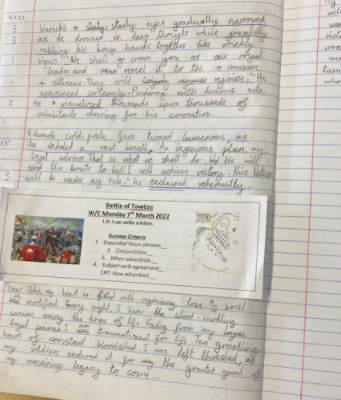 Warick's steely eyes gradually narrowed
as he drowned in deep thought while gracefully
rubbing his bony hands together like wrinkly
vipers "We shall crown you as our royal
leader and reveal it to the unaware
citizens. They will rejoice." He
announced solemnly. Pondering with devious acts
He visualized thousands upon thousands of
inhabitants charing for his coronation.
Edwards cold, pale face turned luminous, as
he inhaled a vast breath. "An ingenious plan, my
loyal advisor. That is what we shall do. We will
send this brute to hell. I will achieve victory. This Nation
will be under my rule." he exclaimed vehemently.
EXT
Battle of Towton
W/C Monday 7th March 2022
L.O: I can write a letter.
Success Criteria
1. Expanded Noun phrases__
2. Conjunctions__
3. When adverbials__
4. Subject verb agreement__
EXT: How adverbials__
Dear John, my heart is filled with agonising loss. My soul
was mortified. Every night, I hear the blood-curdling
screams among the drops of life fading from my
loyal pawns. I am traumatised for life. Ten gruelling
hours of constant bloodshed I was left
my soldiers endured it for the greater good of
my remaining legacy to come...